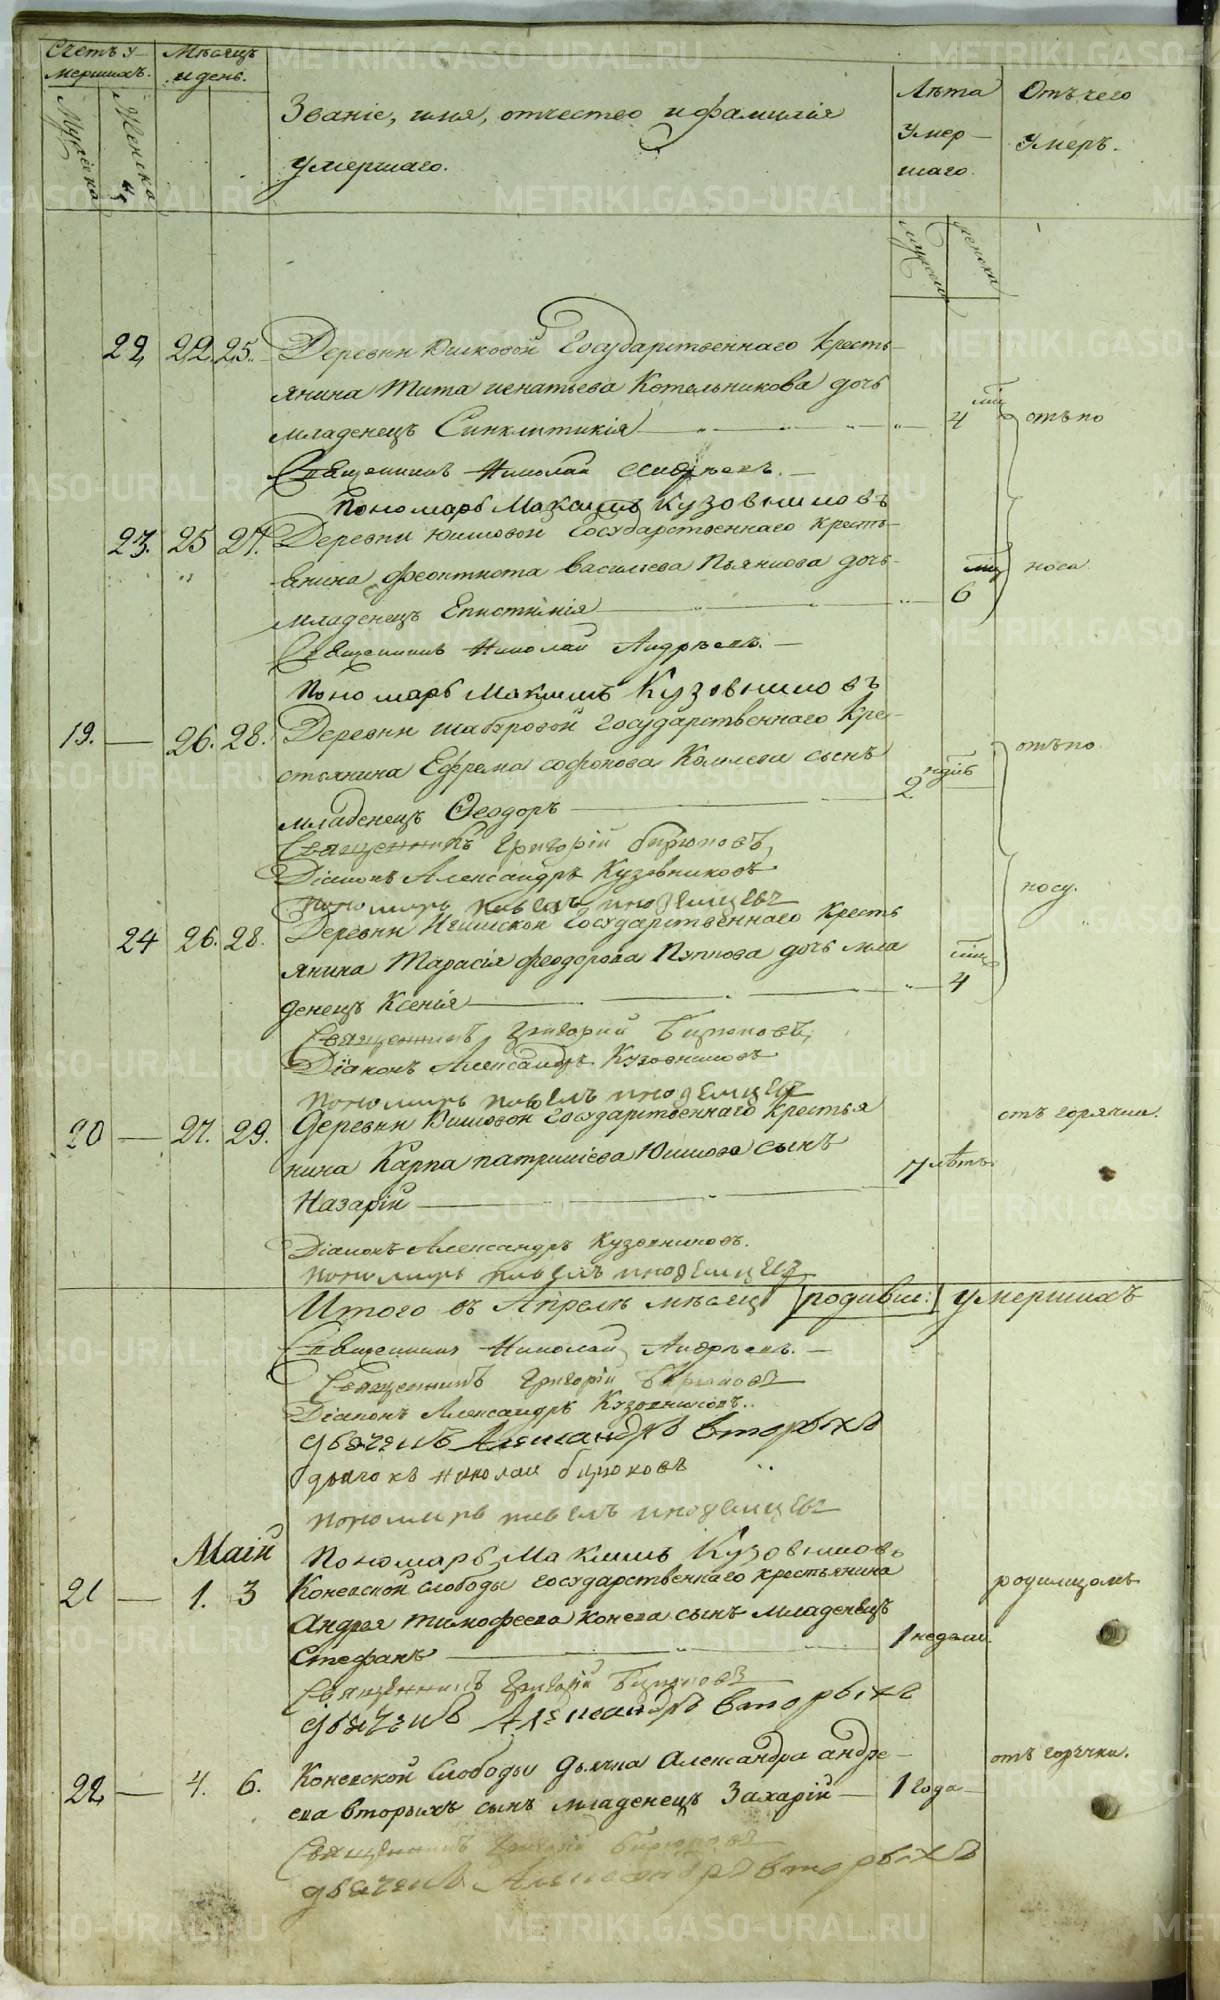 Счетъ у-
мершихъ.
Мѣсяцъ
и день.
Мужеска
Женска
Званіе, имя, отчество и фамилія
умершаго.
Лѣта
умер-
шаго.
Отъ чего
умеръ.
мужеска
женска
22 22. 25. Деревни Юшковой Государственнаго кресть-
янина Тита игнатьева Котельникова дочь
младенецъ Синклитикія 4 отъ по
Священникъ Николай Андреевъ.
Пономарь Максимъ Кузовниковъ
23. 25 27. Деревни Юшковой Государственнаго кресть-
янина феоктиста васильева Пьянкова дочь
младенецъ Епистимія 6 носа
Священникъ Николай Андреевъ.
Пономарь Максимъ Кузовниковъ
19. 26. 28. Деревни шабуровой Государственнаго кре-
стьянина Ефрема софонова Комлева сынъ
младенецъ Ѳеодоръ 2 недѣль отъ по
Священникъ Григорій бирюковъ,
Діаконъ Александръ Кузовниковъ
пономарь павелъ иноземцевъ
24 26. 28. Деревни Государственнаго кресть
янина Тарасія феодорова Пупкова дочь мла
денецъ Ксенія 4 носу.
Священникъ Григорий Бирюковъ,
Діаконъ Александръ Кузовниковъ
пономарь павелъ иноземцевъ
20 27. 29. Деревни Юшковой Государственнаго крестья
нина Карпа патрикіева Юшкова сынъ 7 лѣтъ. отъ горячки.
Назарій
Діаконъ Александръ Кузовниковъ.
пономарь павелъ иноземцевъ
Итого въ Апрелѣ мѣсяцѣ родивш: умершихъ
Священникъ Николай Андреевъ.
Священникъ Григорій Бирюковъ
Діаконъ Александръ Кузовниковъ..
дьячекъ Александръ вторыхъ
дьячокъ николай бирюковъ
пономарь павелъ иноземцевъ
Маій
Пономарь Максимъ Кузовниковъ
21 1. 3 Коневской слободы государственнаго крестьянина родимцомъ
Андрея тимофеева Конева сынъ младенецъ
Стефанъ 1 недели.
Священникъ Григорій Бирюковъ
дьячекъ Александръ вторыхъ
22 4. 6. Коневской Слободы дьячка Александра андре- отъ горячки.
ева вторыхъ сынъ младенецъ Захарій 1 года
Священникъ Григорій бирюковъ
дьячекъ Александръ вторыхъ
METRIKI.GASO-URAL.RU